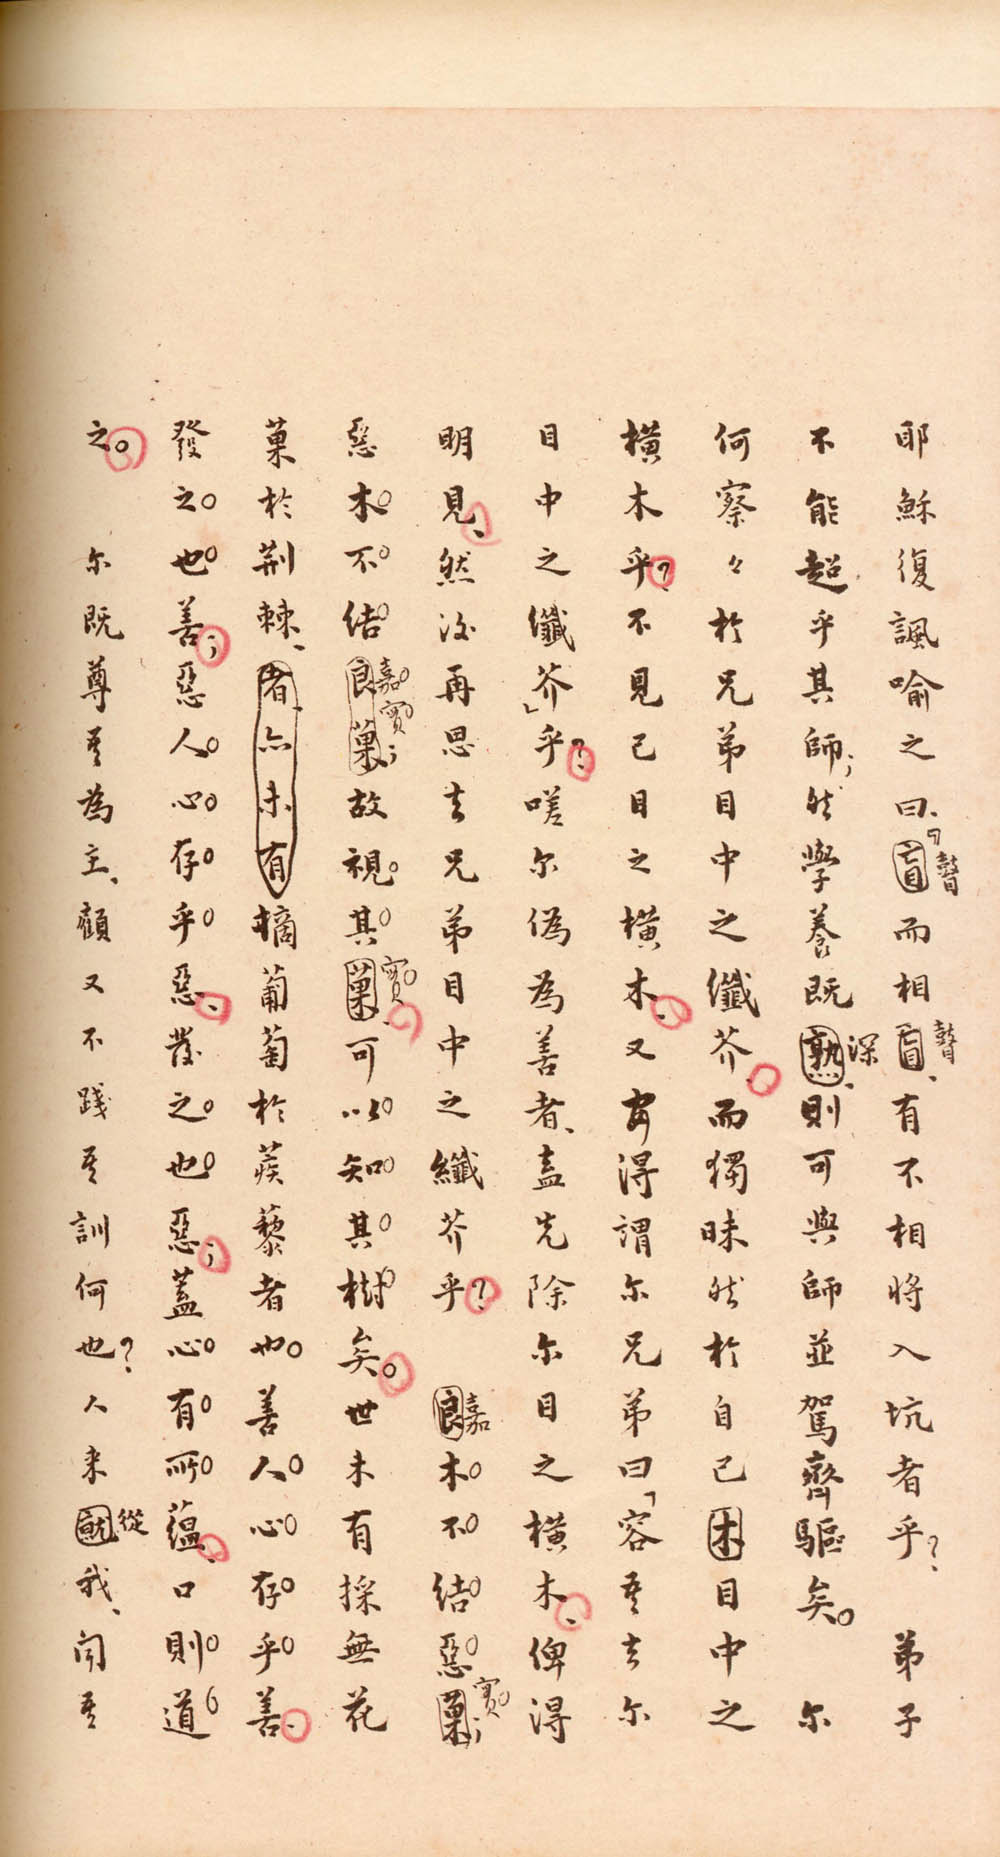 耶穌復諷喻之曰、「盲瞽而相盲瞽、有不相將入坑者乎？　弟子
不能超乎其師；然學養既熟深、則可與師並駕齊驅矣。　尔
何察々於兄弟目中之纖芥、而獨昧然於自己木目中之
橫木乎？不見己目之橫木、又安得謂尔兄弟曰「容吾去尔
目中之纖芥」乎？嗟尔偽為善者、盍先除尔目之橫木、俾得
明見、然後再思去兄弟目中之纖芥乎？　良嘉木不結惡菓實；
惡木不結良菓嘉實；故視其菓實、可以知其樹矣。世未有採無花
菓於荆棘、者亦未有摘葡萄於蒺藜者也。善人心存乎善、
發之也善；惡人心存乎惡、發之也惡；蓋心有所蘊、口則道
之。　尔既尊吾為主、顧又不踐吾訓何也？人来就從我、聞吾